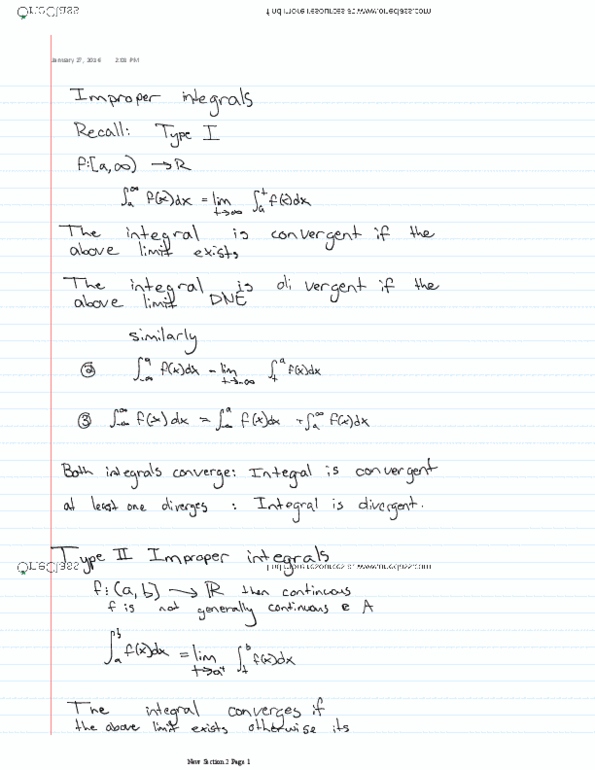 OneClass
find more resources at www.oneclass.com
January 27, 2016 2:01 PM
Improper integrals
Recall: Type I
f:[a,∞) → ℝ
∫ₐ^∞ f(x)dx = lim t→∞ ∫ₐ^t f(x)dx
The integral is convergent if the
above limit exists
The integral is divergent if the
above limit DNE
similarly
② ∫₋∞^a f(x)dx = lim t→-∞ ∫ₜ^a f(x)dx
③ ∫₋∞^∞ f(x)dx = ∫₋∞^a f(x)dx + ∫ₐ^∞ f(x)dx
Both integrals converge: Integral is convergent
at least one diverges : Integral is divergent.
Type II Improper integrals
OneClass
find more resources at www.oneclass.com
f:(a,b] → ℝ then continuous
f is not generally continuous @ A
∫ₐ^b f(x)dx = lim t→a⁺ ∫ₜ^b f(x)dx
The integral converges if
the above limit exists otherwise its
New Section 2 Page 1